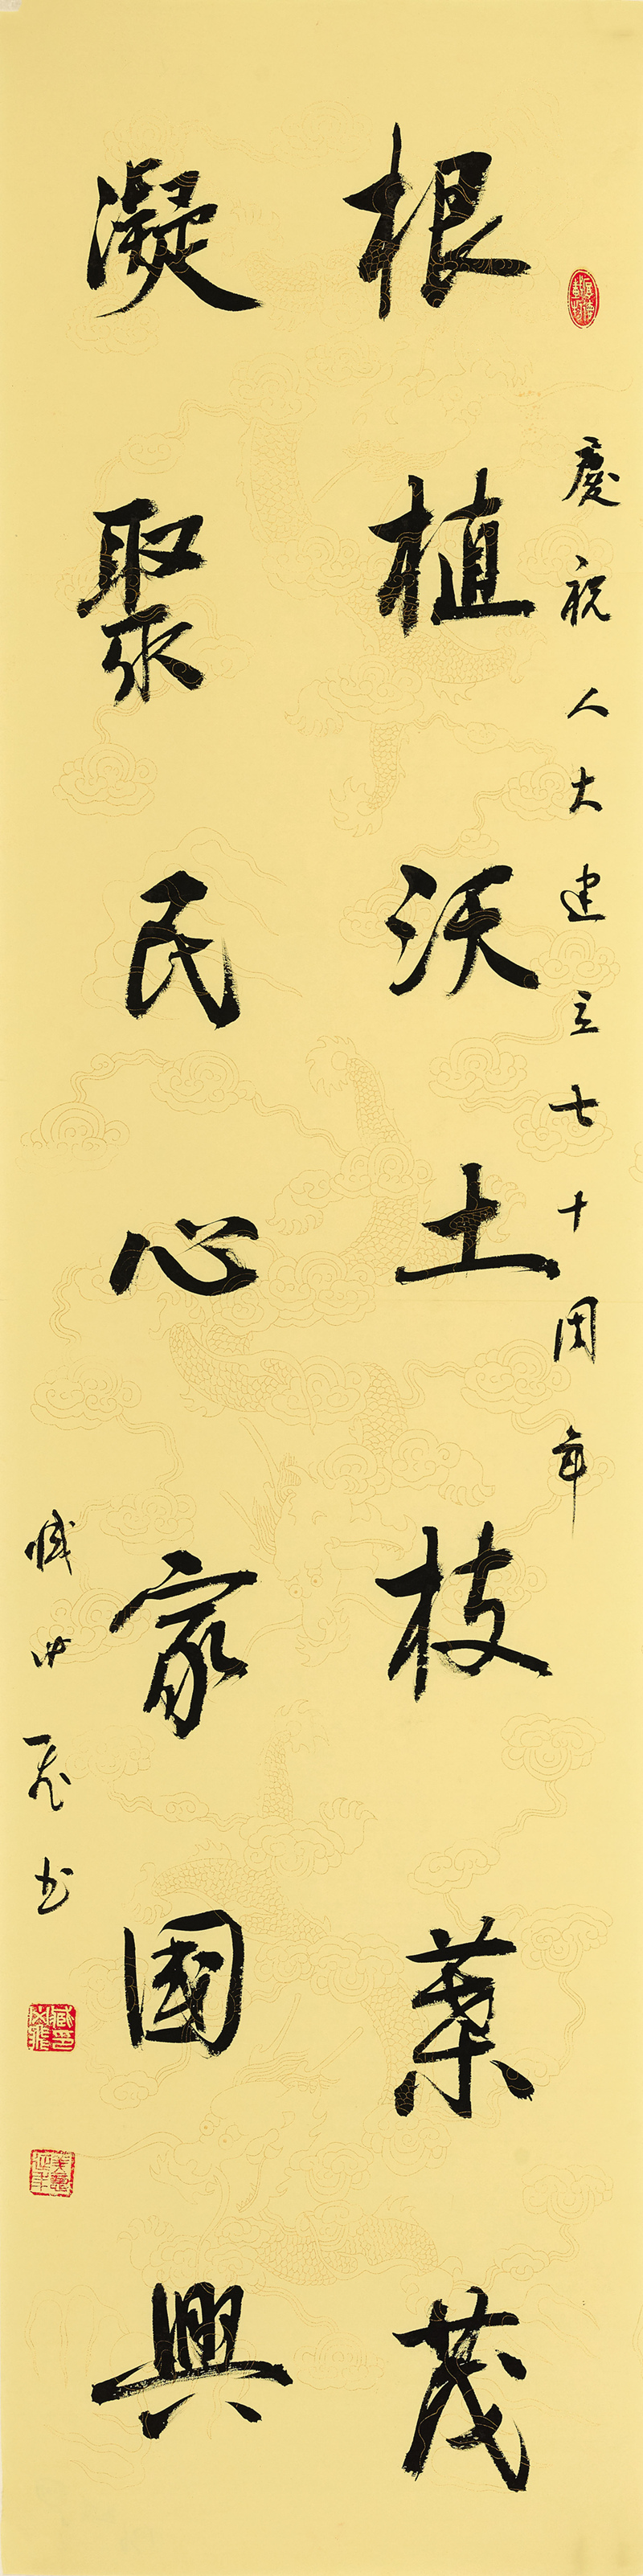 慶祝人大建立七十周年
根植沃土枝葉茂
凝聚民心家國興
臧飛书